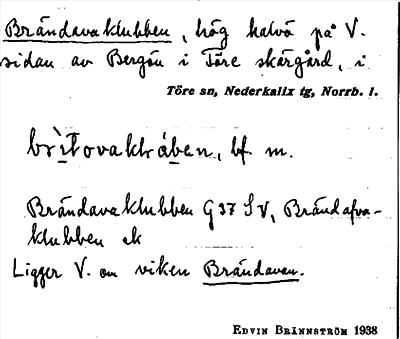 Brändavaklubben, hög halvö på V.
sidan av Bergön i Töre skärgård, i
Töre sn, Nederkalix tg, Norrb. l.
bf. m.
Brändavaklubben G37 SV, Brändafva-
klubben ek
Ligger V. om viken Brändavan.
EDVIN BRÄNNSTRÖM 1938